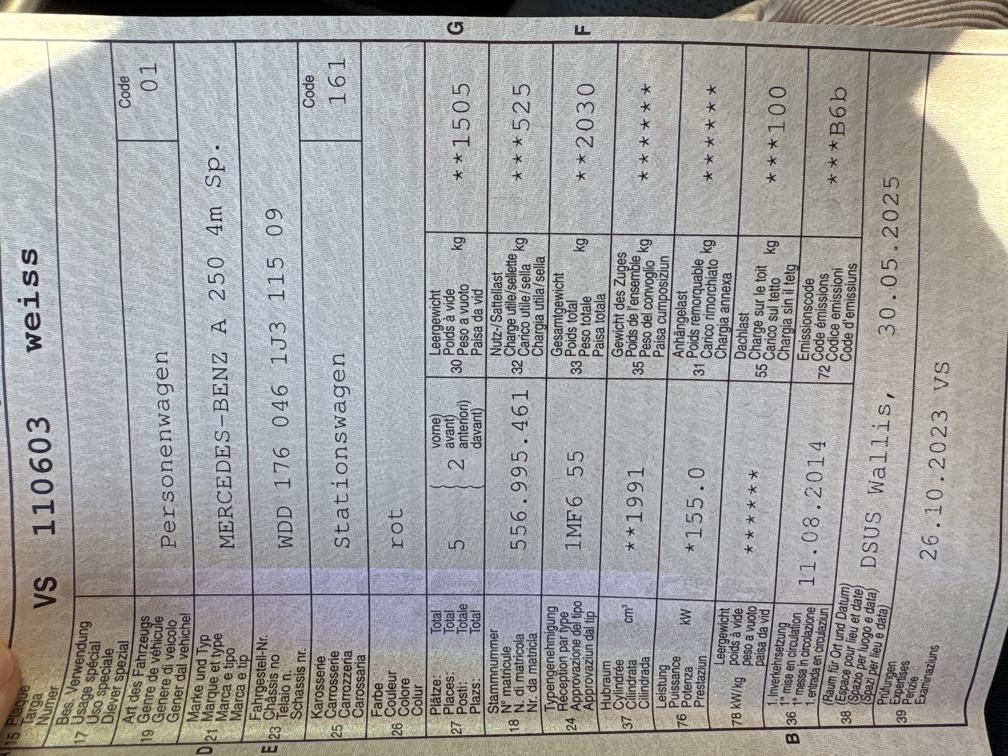 15 Plaque
Targa
Numer
VS 110603 weiss
Bes. Verwendung
17 Usage spécial
Uso speciale
Diever spezial
Art des Fahrzeugs
19 Genre de véhicule
Genere di veicolo
Gener dal vehichel
Personenwagen
Code
01
D
Marke und Typ
21 Marque et type
Marca e tipo
Marca e tip
MERCEDES-BENZ A 250 4m Sp.
E
Fahrgestell-Nr.
23 Châssis no
Telaio n.
Schassis nr.
WDD 176 046 1J3 115 09
Karosserie
25 Carrosserie
Carrozzeria
Carossaria
Stationswagen
Code
161
Farbe
26 Couleur
Colore
Colur
rot
Plätze: Total
27 Places: Total
Posti: Totale
Plazs: Total
5 } 2
vorne)
avant)
anteriori)
davant)
Leergewicht
30 Poids à vide
Peso a vuoto kg
Paisa da vid
**1505
G
Stammnummer
18 N° matricule
N. di matricola
Nr. da matricla
556.995.461
Nutz-/Sattellast
32 Charge utile/sellette kg
Carico utile/sella
Chargia utila/sella
***525
Typengenehmigung
24 Réception par type
Approvazione del tipo
Approvaziun dal tip
1MF6 55
Gesamtgewicht
33 Poids total kg
Peso totale
Paisa totala
**2030
F
Hubraum
37 Cylindrée cm³
Cilindrata
Cilindrada
**1991
Gewicht des Zuges
35 Poids de l'ensemble kg
Peso del convoglio
Paisa cumposiziun
*******
Leistung
76 Puissance kW
Potenza
Prestaziun
*155.0
Anhängelast
31 Poids remorquable kg
Carico rimorchiato
Chargia annexa
*******
78 kW/kg
Leergewicht
poids à vide
peso a vuoto
paisa da vid
******
Dachlast
55 Charge sur le toit kg
Carico sul tetto
Chargia sin il tetg
***100
B
1. Inverkehrsetzung
36 1re mise en circulation
1a messa in circolazione
1. entrada en circulaziun
11.08.2014
Emissionscode
72 Code émissions
Codice emissioni
Code d'emissiuns
***B6b
(Raum für Ort und Datum)
38 (Espace pour lieu et date)
(Spazio per luogo e data)
(Spazi per lieu e data)
DSUS Wallis, 30.05.2025
Prüfungen
39 Expertises
Perizie
Examinaziuns
26.10.2023 VS